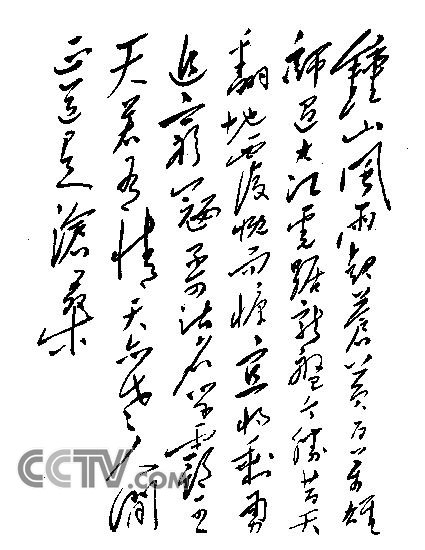 鍾山風雨起蒼黃百萬雄
師過大江虎踞龍盤今勝昔天
翻地覆慨而慷宜將剩勇
追窮寇不可沽名學霸王
天若有情天亦老人間
正道是滄桑
CCTV.com